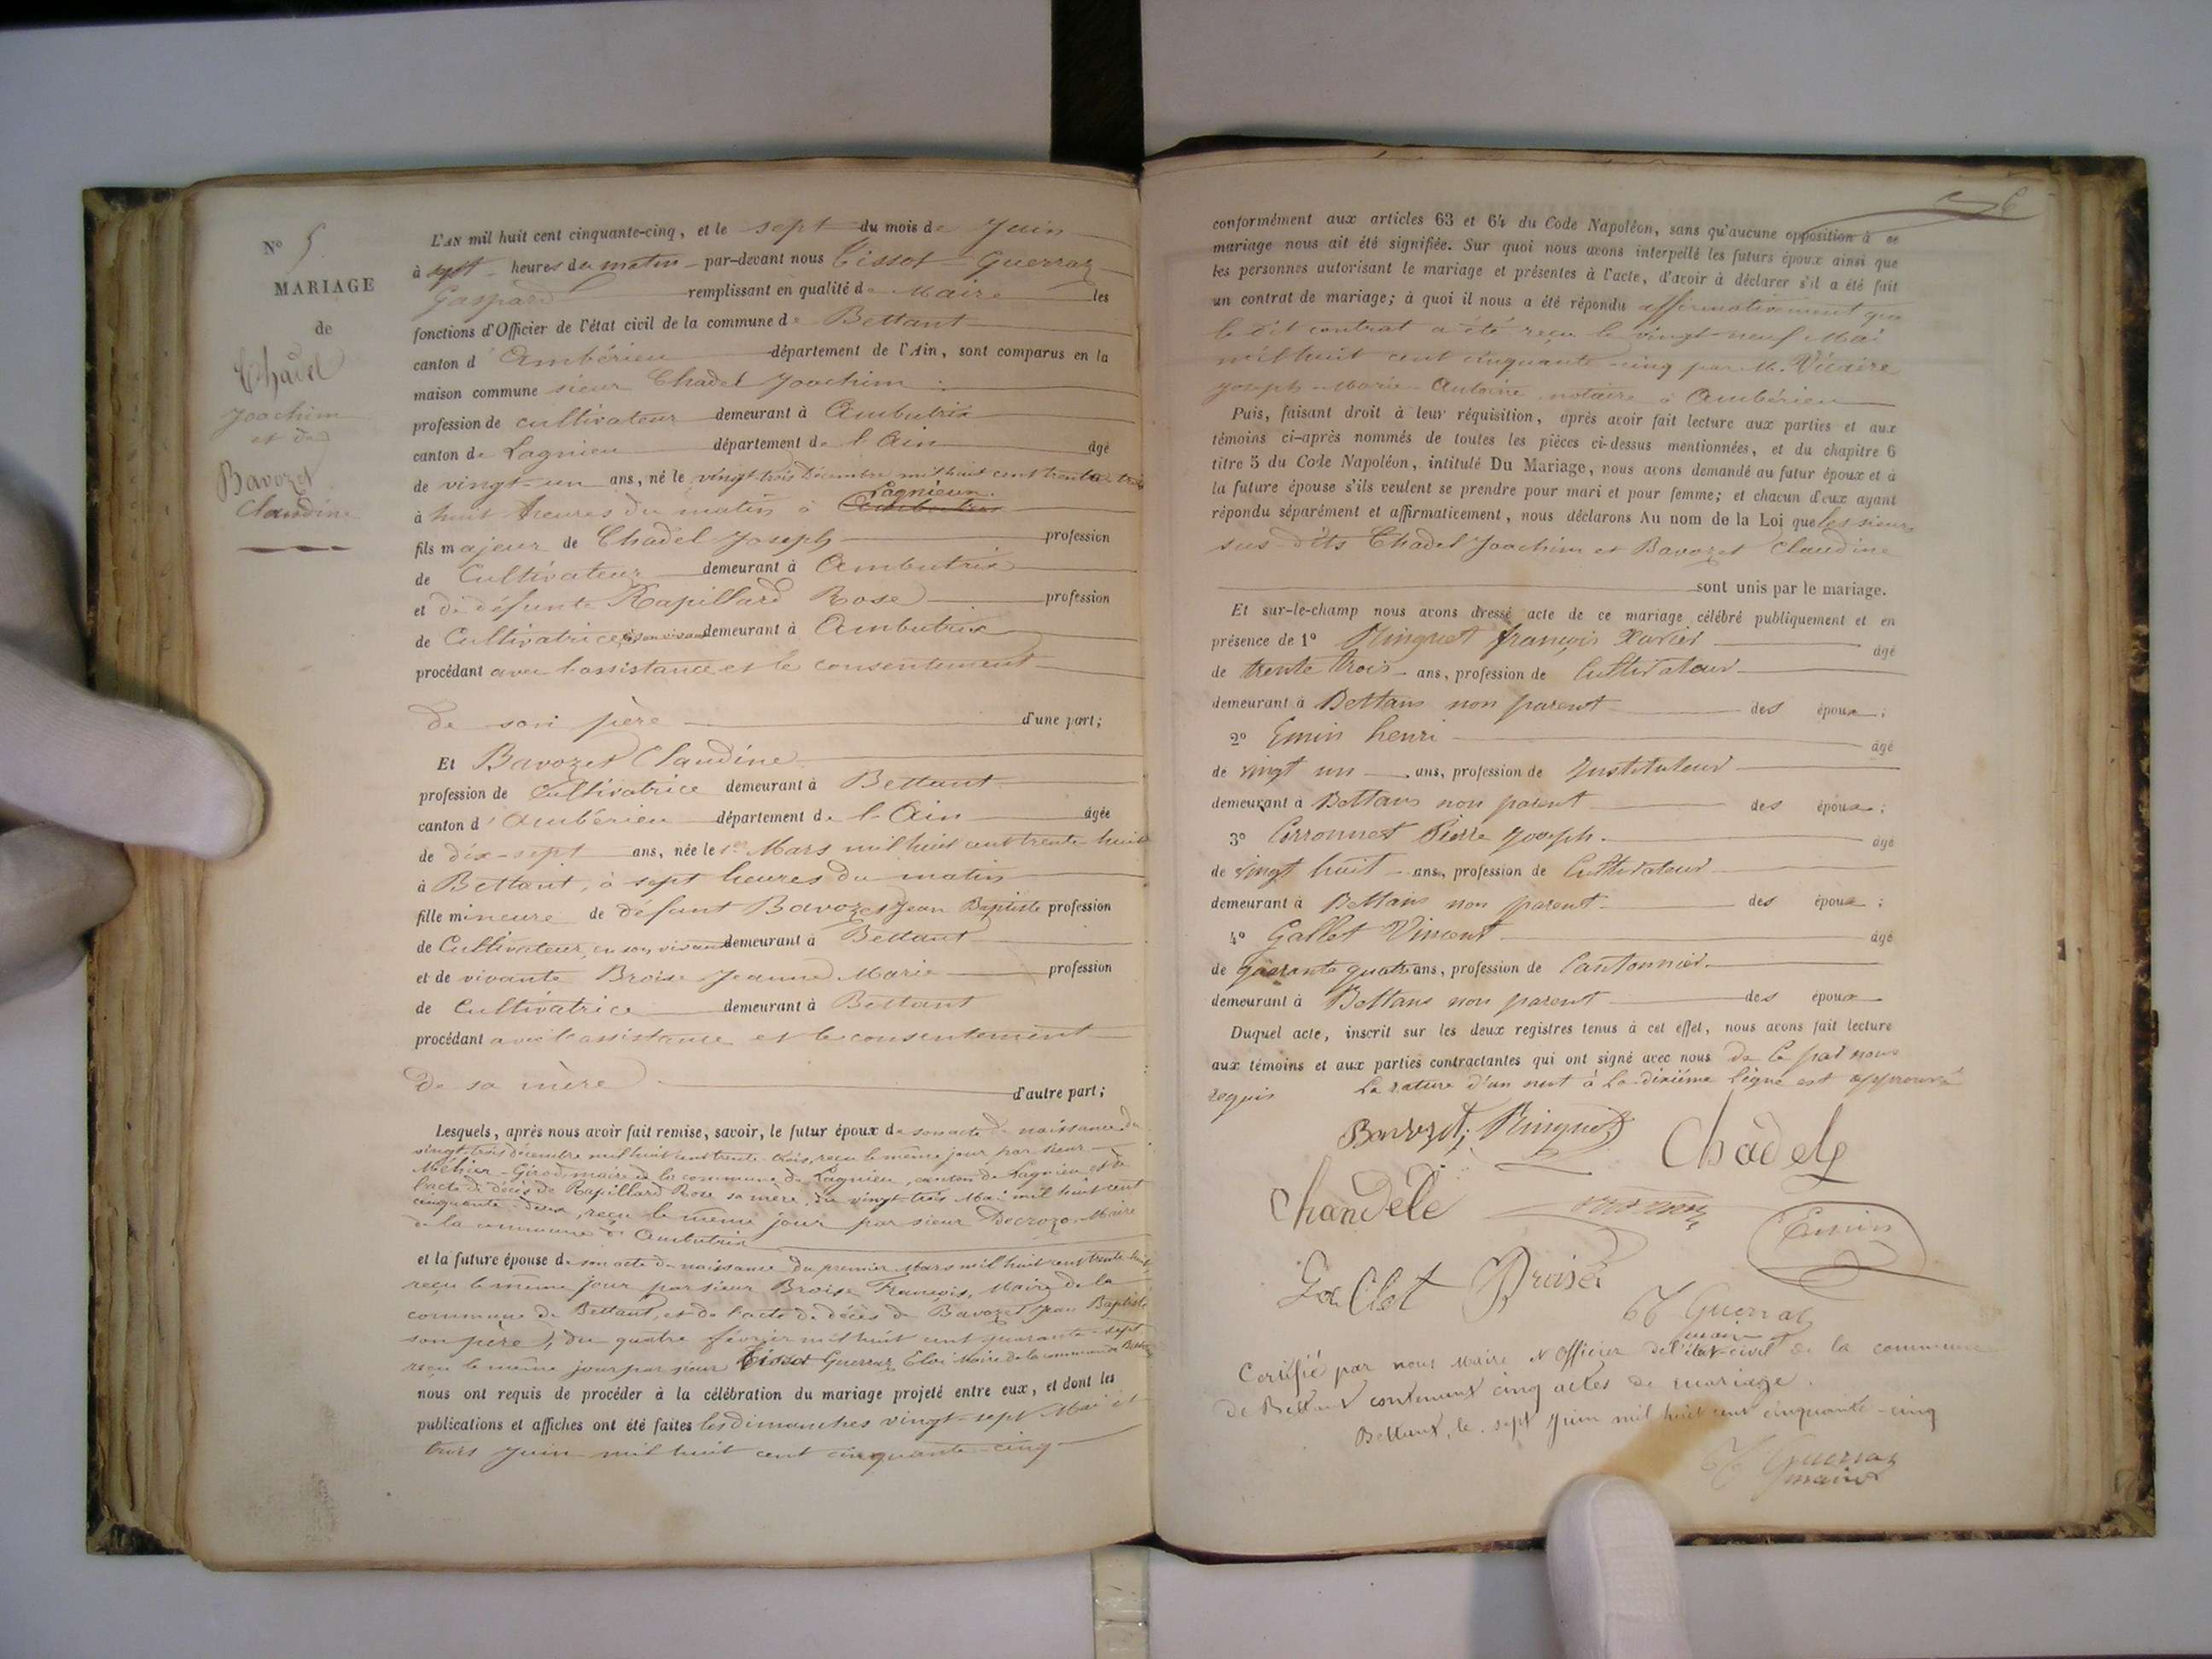 N° 5
MARIAGE
de
Chadel
Joachim
et de
Bavozet
Claudine
L'AN mil huit cent cinquante-cinq, et le sept du mois de Juin
à sept heures du matin par-devant nous Tissot Guerraz
Gaspard remplissant en qualité de Maire les
fonctions d'Officier de l'état civil de la commune de Bettant
canton d'Ambérieu département de l'Ain, sont comparus en la
maison commune sieur Chadel Joachim
profession de cultivateur demeurant à Ambutrix
canton de Lagnieu département de l'Ain âgé
de vingt-un ans, né le vingt-trois Décembre mil huit cent trente trois
Lagnieu.
à huit heures du matin à Ambutrix
fils majeur de Chadel Joseph profession
de Cultivateur demeurant à Ambutrix
et de défunte Rapillard Rose profession
de Cultivatrice en son vivant demeurant à Ambutrix
procédant avec l'assistance et le consentement
de son père d'une part;
Et Bavozet Claudine
profession de Cultivatrice demeurant à Bettant
canton d'Ambérieu département de l'Ain âgée
de dix-sept ans, née le 1er Mars mil huit cent trente-huit
à Bettant, à sept heures du matin
fille mineure de défunt Bavozet Jean Baptiste profession
de Cultivateur, en son vivant demeurant à Bettant
et de vivante Broise Jeanne Marie profession
de Cultivatrice demeurant à Bettant
procédant avec l'assistance et le consentement
de sa mère d'autre part;
Lesquels, après nous avoir fait remise, savoir, le futur époux de son acte de naissance du
vingt-trois décembre mil huit cent trente-trois, reçu le même jour par sieur
Méhier-Girod, maire de la commune de Lagnieu, canton de Lagnieu et de
l'acte de décès de Rapillard Rose sa mère, du vingt-trois Mai mil huit cent
cinquante-deux, reçu le même jour par sieur Decrozo, Maire
de la commune d'Ambutrix
et la future épouse de son acte de naissance du premier Mars mil huit cent trente-huit
reçu le même jour par sieur Broise François, Maire de la
commune de Bettant, et de l'acte de décès de Bavozet Jean Baptiste
son père, du quatre février mil huit cent quarante-sept
reçu le même jour par sieur Tissot Guerraz Eloi Maire de la commune de Bettant
nous ont requis de procéder à la célébration du mariage projeté entre eux, et dont les
publications et affiches ont été faites les dimanches vingt-sept Mai et
trois Juin mil huit cent cinquante-cinq
conformément aux articles 63 et 64 du Code Napoléon, sans qu'aucune opposition à ce
mariage nous ait été signifiée. Sur quoi nous avons interpellé les futurs époux ainsi que
les personnes autorisant le mariage et présentes à l'acte, d'avoir à déclarer s'il a été fait
un contrat de mariage; à quoi il nous a été répondu affirmativement que
le dit contrat a été reçu le vingt-neuf Mai
mil huit cent cinquante-cinq par M. Vicaire
Joseph-Marie-Antoine notaire à Ambérieu
Puis, faisant droit à leur réquisition, après avoir fait lecture aux parties et aux
témoins ci-après nommés de toutes les pièces ci-dessus mentionnées, et du chapitre 6
titre 5 du Code Napoléon, intitulé Du Mariage, nous avons demandé au futur époux et à
la future épouse s'ils veulent se prendre pour mari et pour femme; et chacun d'eux ayant
répondu séparément et affirmativement, nous déclarons Au nom de la Loi que les sieurs
sus-dits Chadel Joachim et Bavozet Claudine
sont unis par le mariage.
Et sur-le-champ nous avons dressé acte de ce mariage célébré publiquement et en
présence de 1° Ringuet françois Xavier âgé
de trente trois ans, profession de Cultivateur
demeurant à Bettans non parent des époux;
2° Emin henri âgé
de vingt un ans, profession de Instituteur
demeurant à Bettans non parent des époux;
3° Corronnet Pierre Joseph. âgé
de vingt huit ans, profession de Cultivateur
demeurant à Bettans non parent des époux;
4° Gallet Vincent âgé
de quarante quatre ans, profession de Cantonnier
demeurant à Bettans non parent des époux
Duquel acte, inscrit sur les deux registres tenus à cet effet, nous avons fait lecture
aux témoins et aux parties contractantes qui ont signé avec nous de ce par nous
requis La rature d'un mot à la dixième ligne est approuvé
Bavozet; Ringuet
Chadel
Chandèle
Emin
Broise
T Guerraz
maire
Certifié par nous Maire et Officier de l'état-civil de la commune
de Bettant contenant cinq actes de mariage.
Bettant, le sept Juin mil huit cent cinquante-cinq
T Guerraz
maire